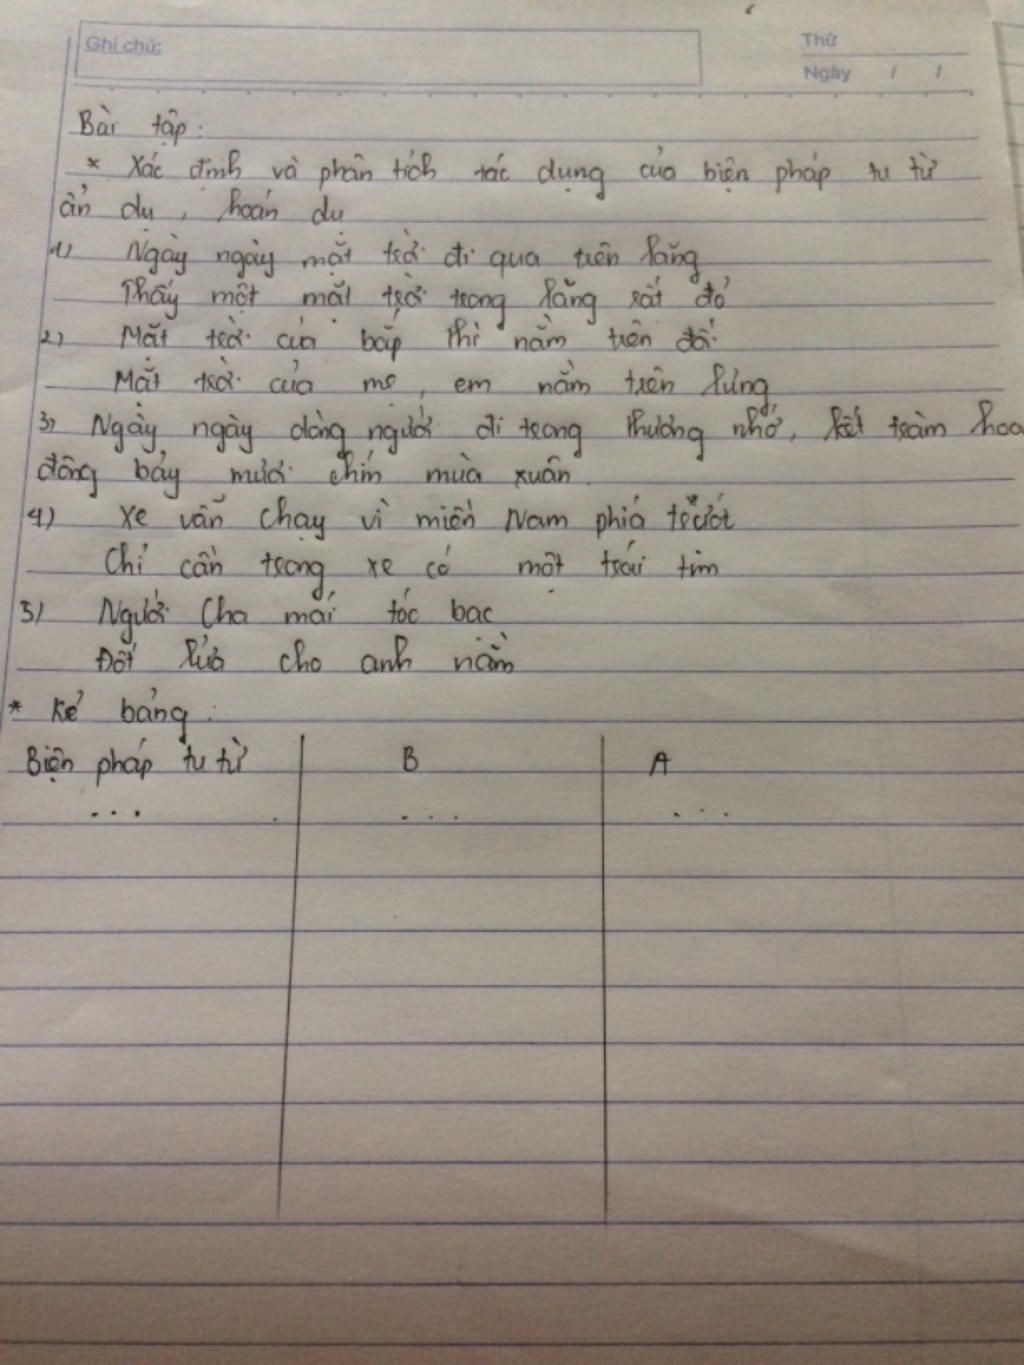 Ghi chú:
Thứ
Ngày / /
Bài tập:
* Xác định và phân tích tác dụng của biện pháp tu từ
ẩn dụ, hoán dụ
1) Ngày ngày mặt trời đi qua trên lăng
Thấy một mặt trời trong lăng rất đỏ
2) Mặt trời của bắp thì nằm trên đồi
Mặt trời của mẹ, em nằm trên lưng
3) Ngày ngày dòng người đi trong thương nhớ, kết tràm hoa
dâng bảy mươi chín mùa xuân.
4) Xe vẫn chạy vì miền Nam phía trước
Chỉ cần trong xe có một trái tim
5) Người Cha mái tóc bạc
Đốt lửa cho anh nằm
* Kẻ bảng:
Biện pháp tu từ B A
... ... ...